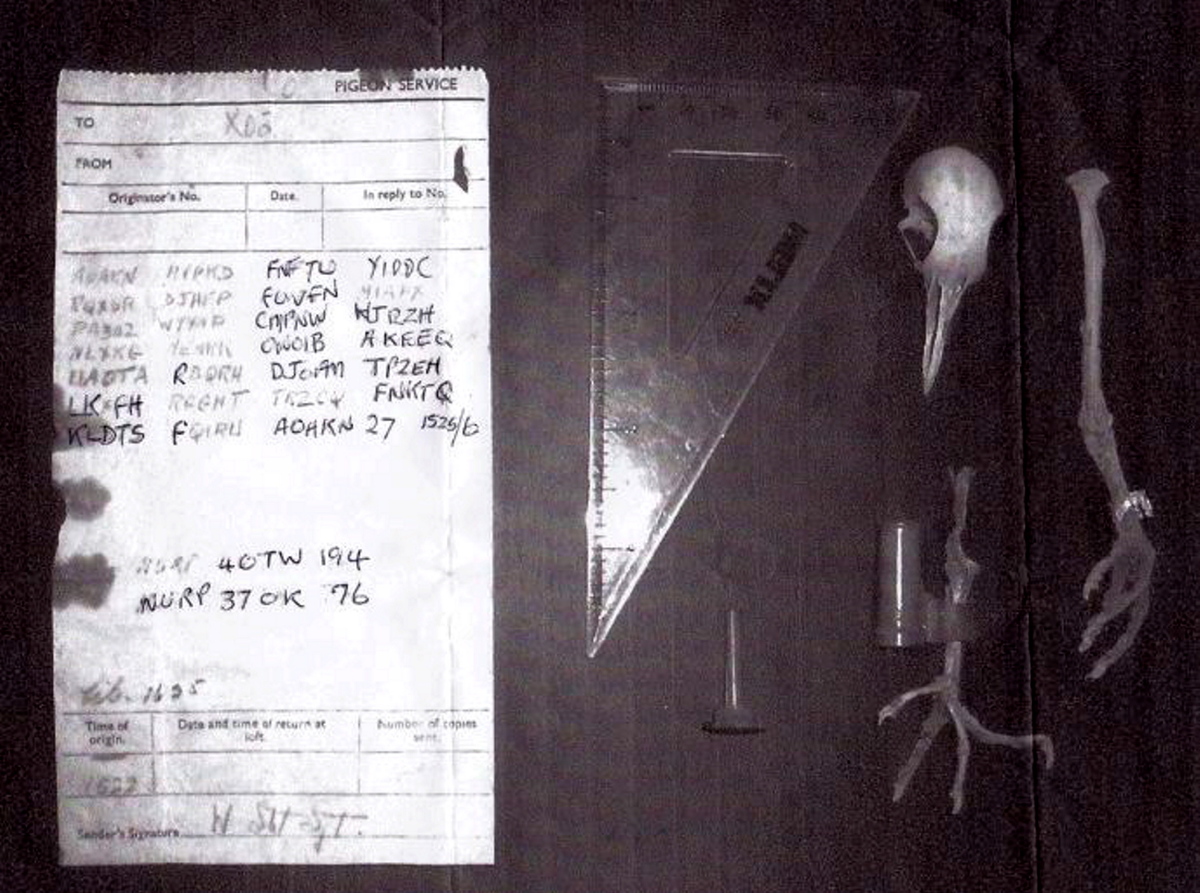 PIGEON SERVICE
TO X02
FROM
Originator's No. Date. In reply to No.
AOAKN HVPKD FNFTW YIDDC
RQXSR DJHFP GOVFN MIAPX
PABUZ WYYNP CMPNW HJRZH
NLXKG MEMKK ONOIB AKEEQ
UAOTA RBQRH DJOFM TPZEH
LKXGH RGGHT JRZCQ FNKTQ
KLDTS FQIRW AOAKN 27 1525/6
NURP 40TW 194
NURP 37OK 76
lib. 1625
Time of origin. Date and time of return at loft. Number of copies sent.
1522
Sender's Signature W Stot Sjt.
HELIX